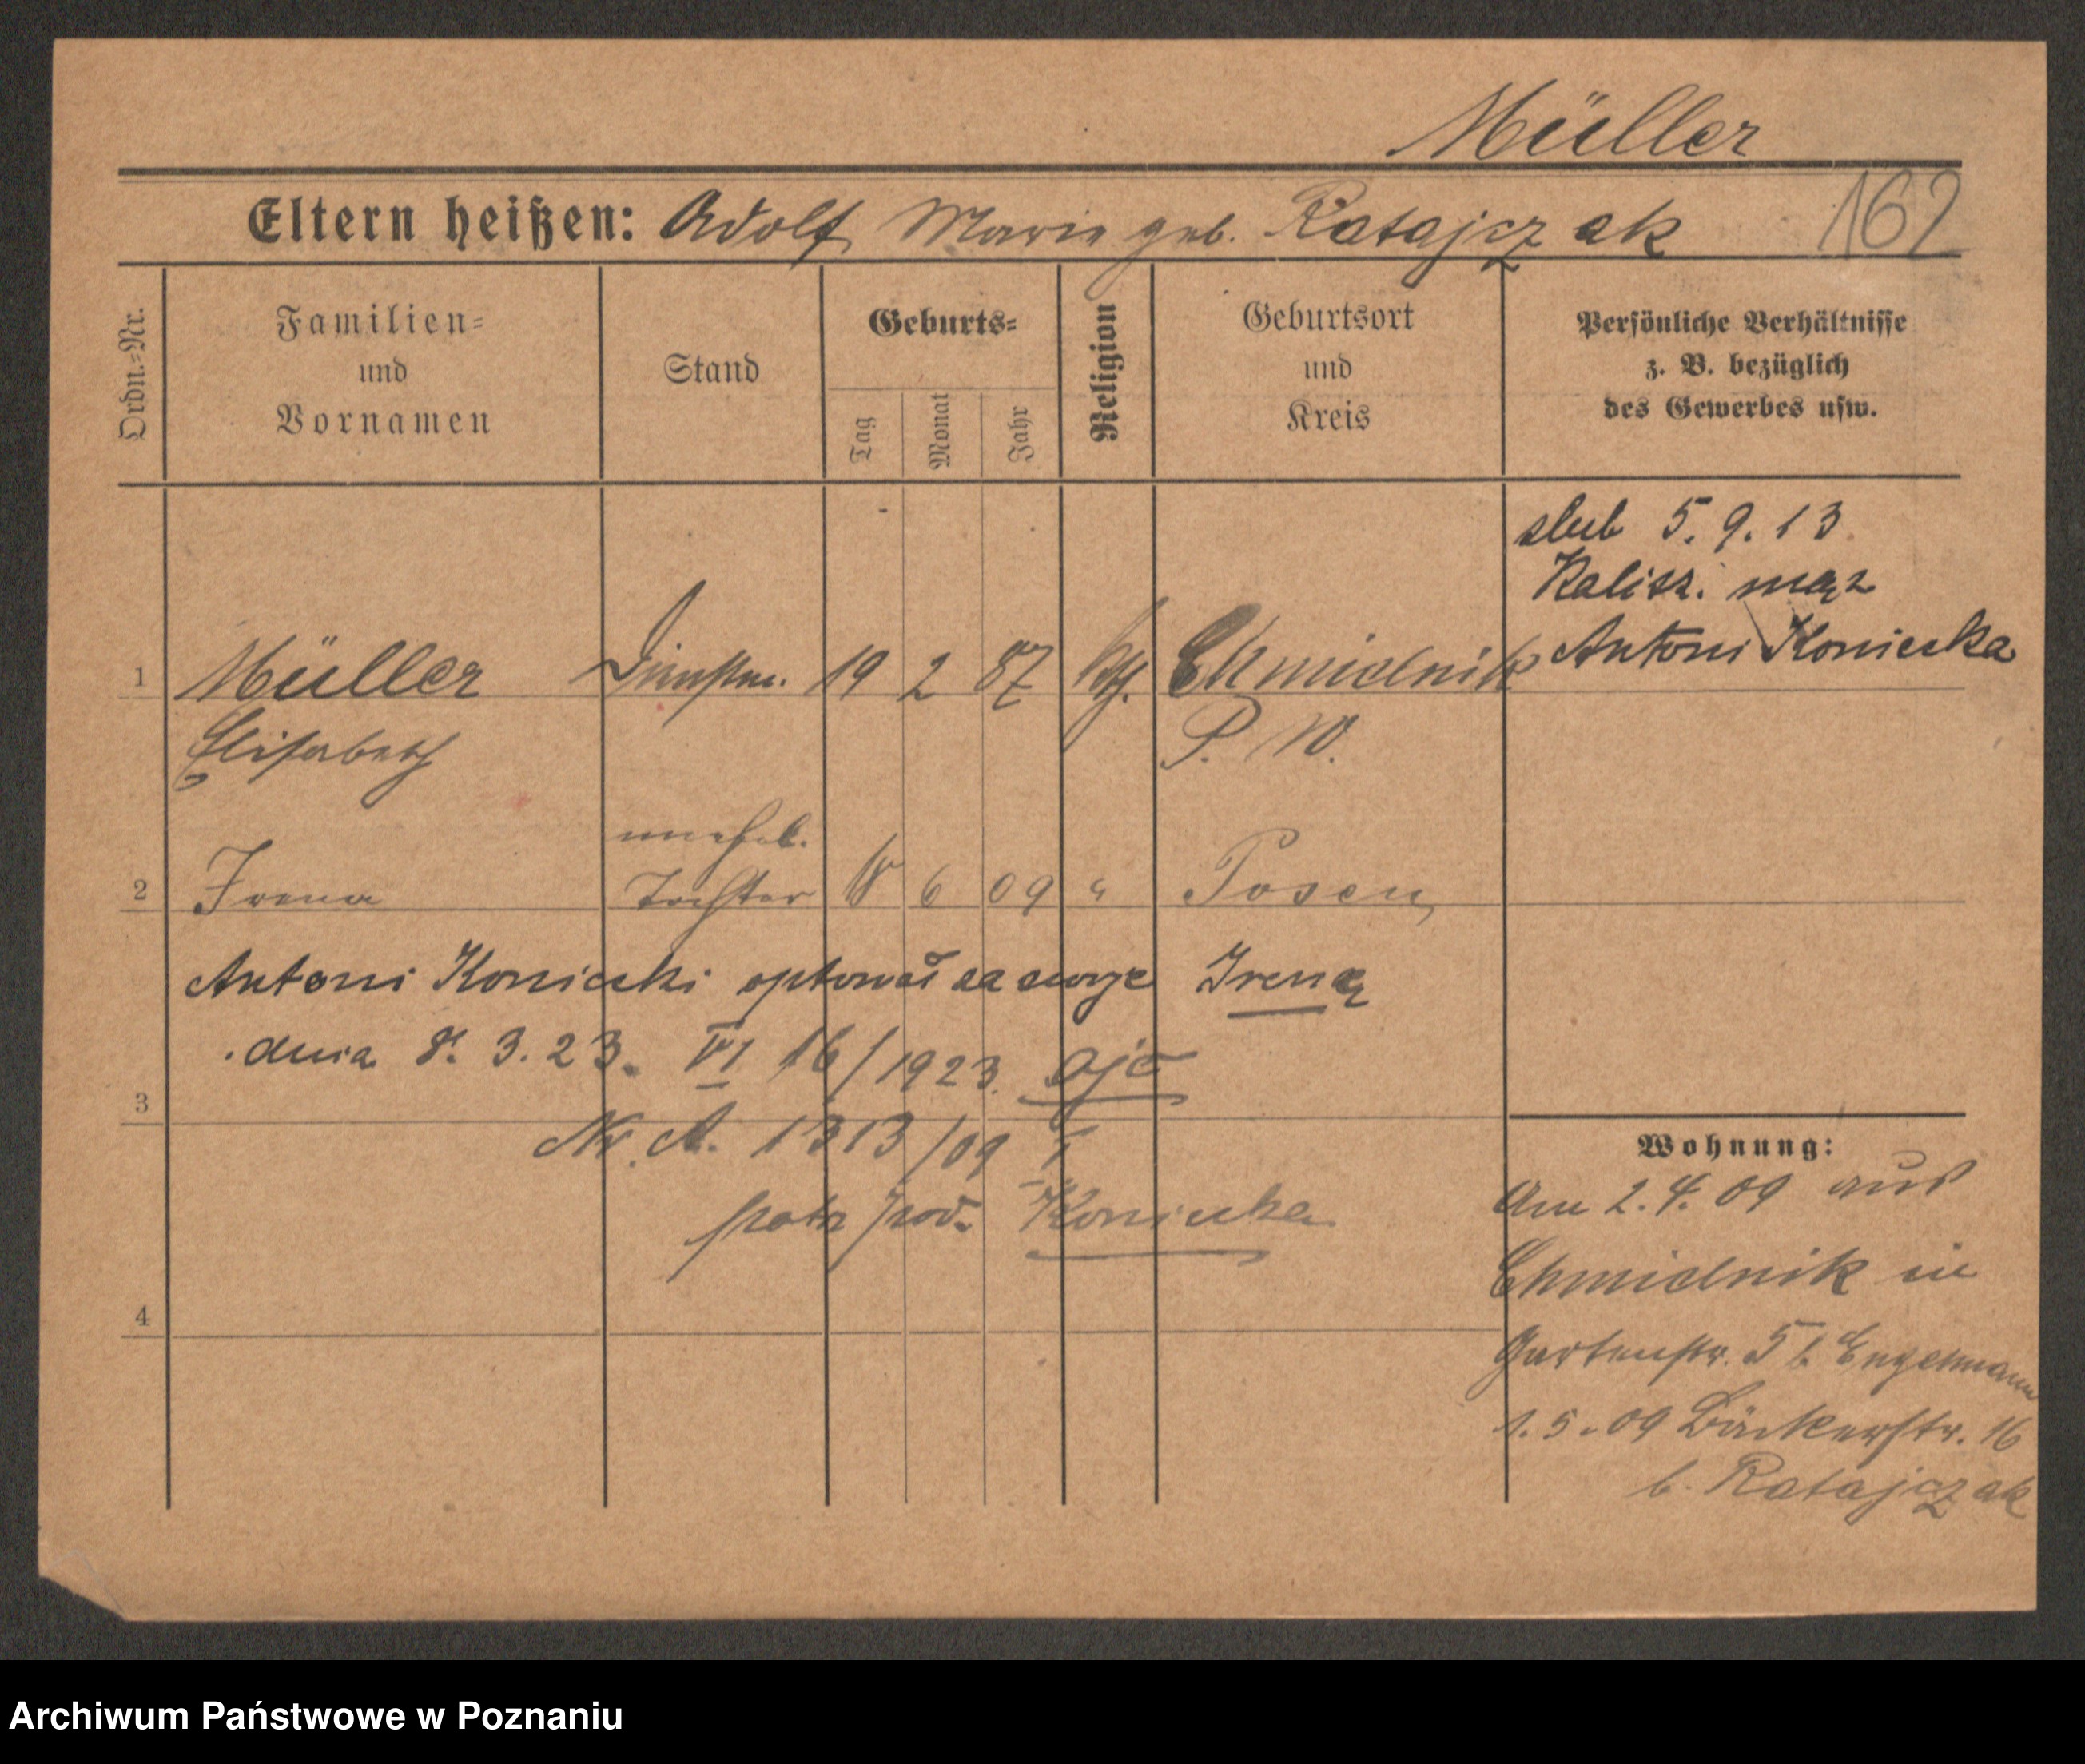 Müller
Eltern heißen: Adolf Marie geb. Ratajczak 162
Ordn.=Nr.
Familien=
und
Vornamen
Stand
Geburts=
Tag
Monat
Jahr
Religion
Geburtsort
und
Kreis
Persönliche Verhältnisse
z. B. bezüglich
des Gewerbes usw.
slub 5. 9. 13
Kalisz. mąż
Antoni Koniecka
1 Müller Dienstm. 19 2 87 kth. Chmielnik
Elisabeth P. W.
unehel.
2 Irena Tochter 18 6 09 " Posen
Antoni Koniecki optował za swoje Irenę
dnia 8. 3. 23. VI 16/1923 Ojc
3
Nr. A. 1313/09 I
patrz pod Koniecka
4
Wohnung:
Am 2. 4. 09 aus
Chmielnik in
Gartenstr. 5 b. Engelmann
1. 5. 09 Bäckerstr. 16
b. Ratajczak
Archiwum Państwowe w Poznaniu